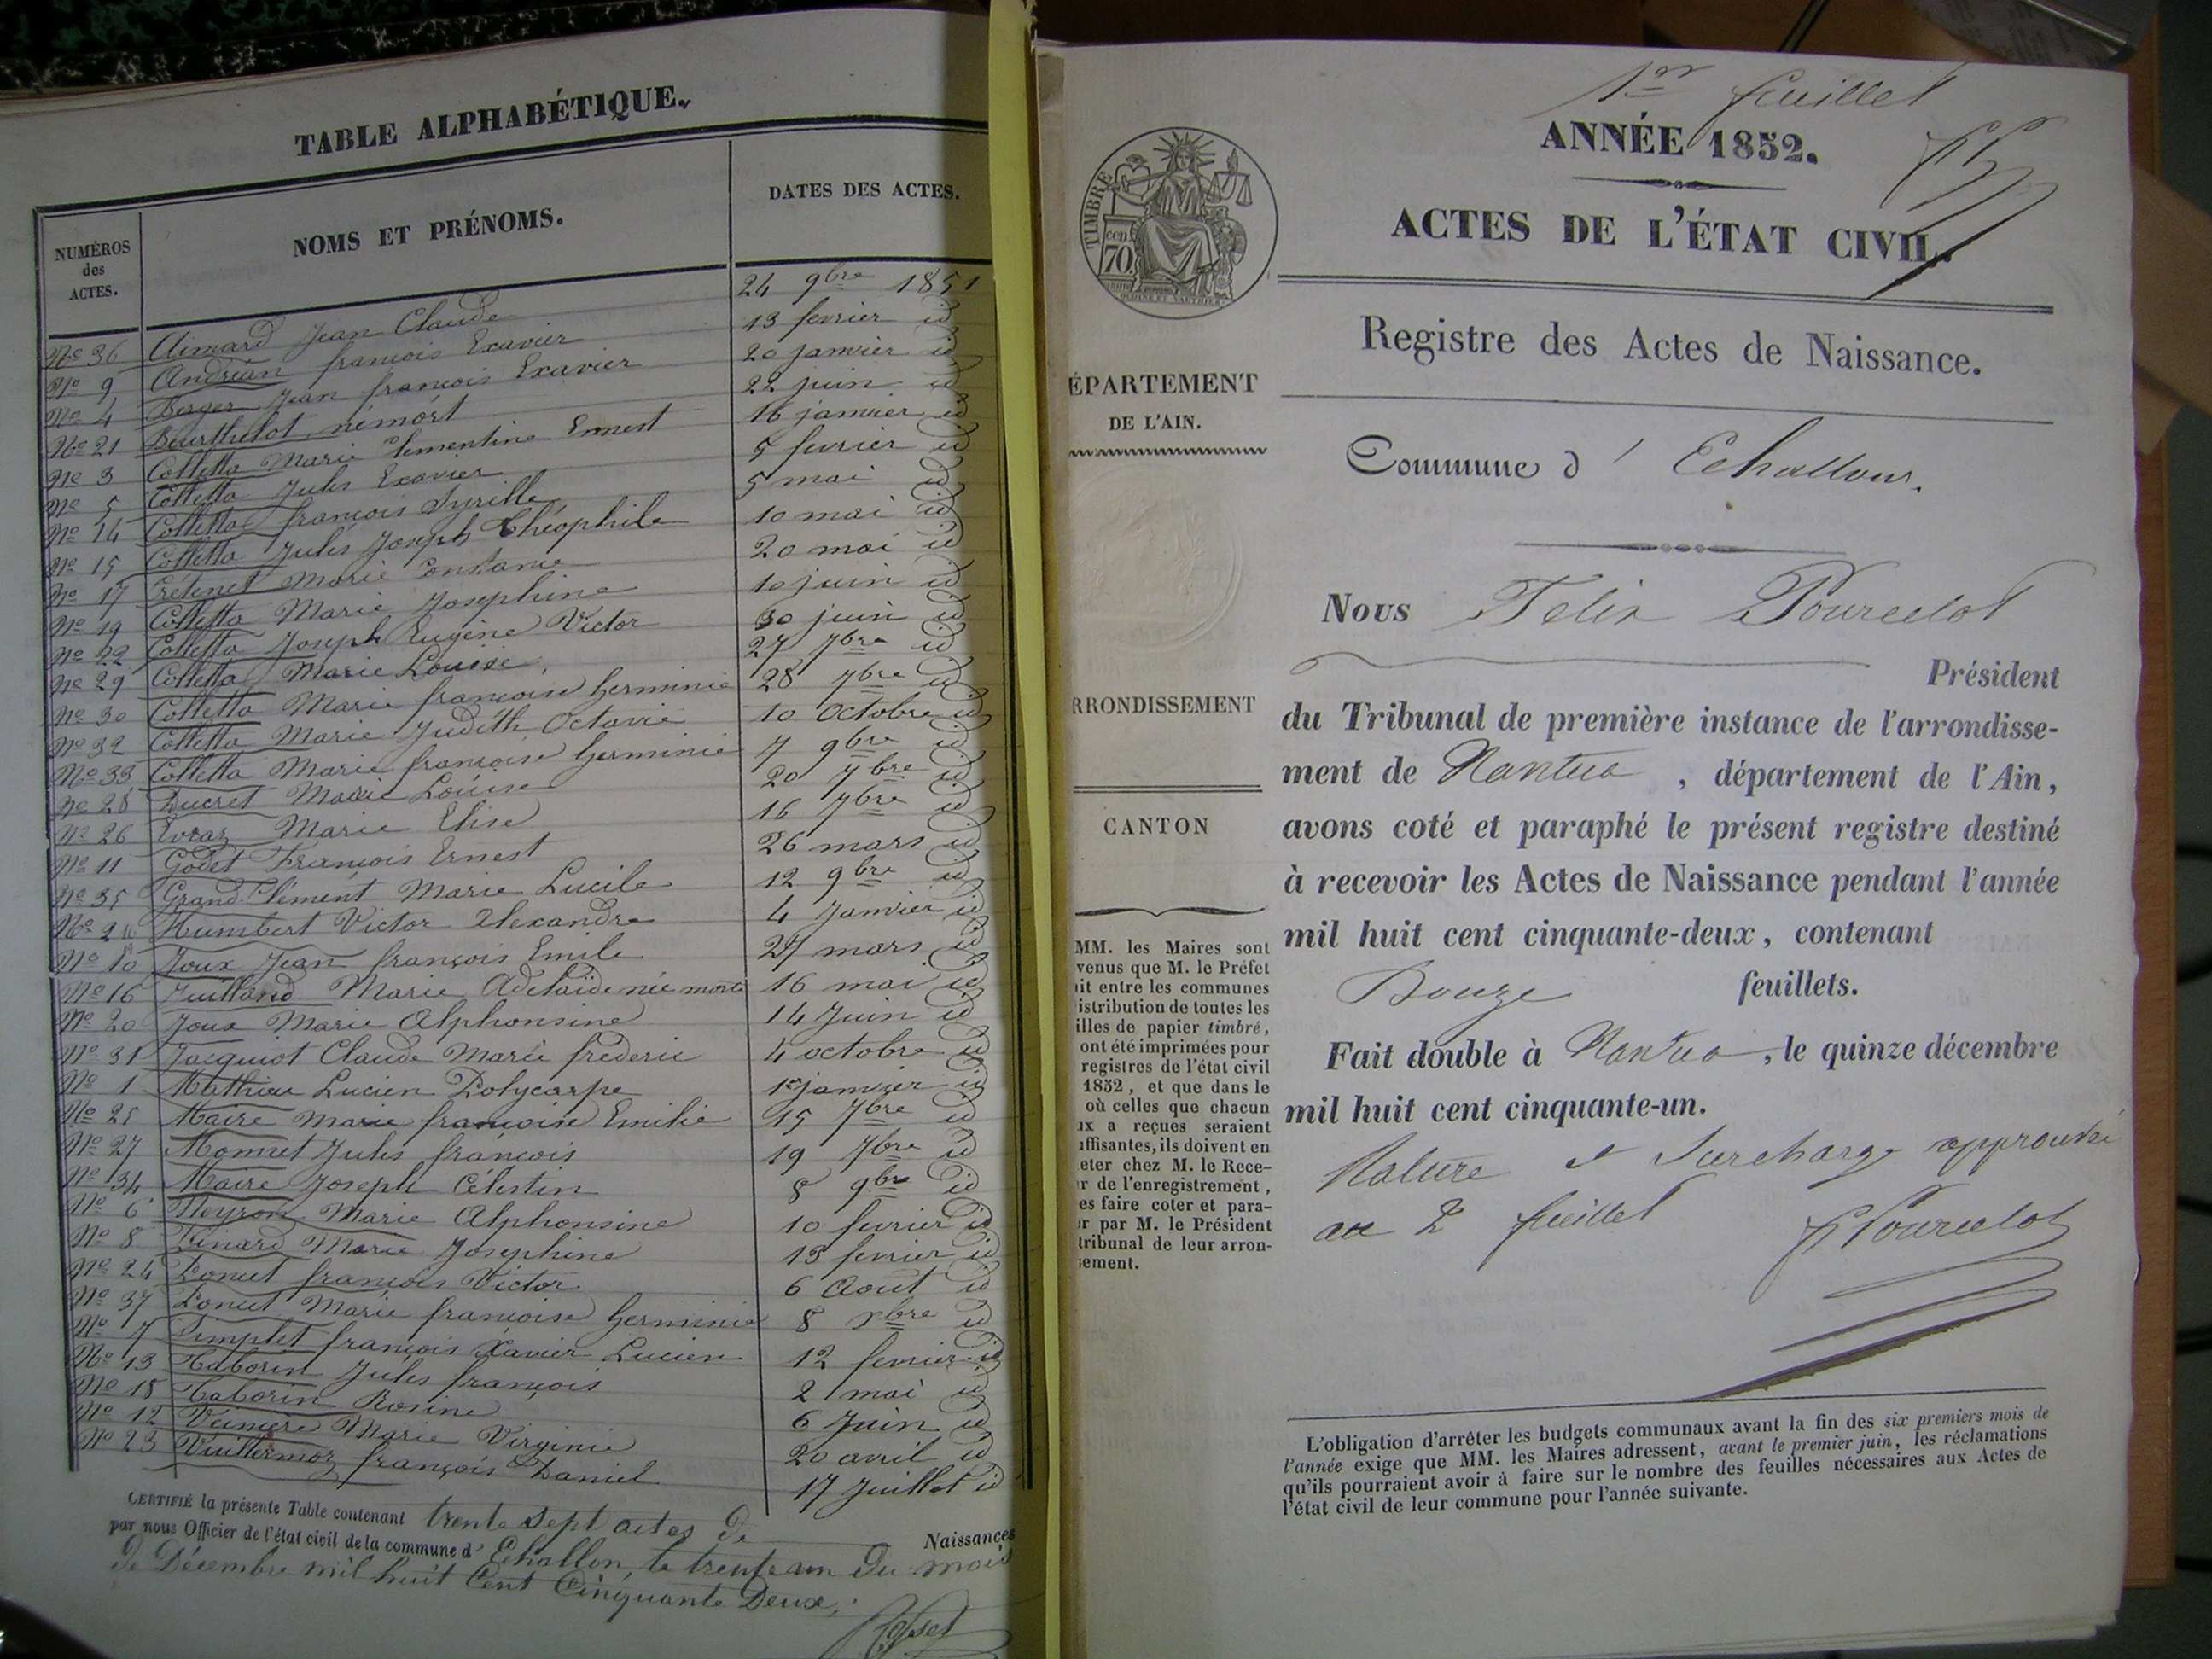 TABLE ALPHABÉTIQUE.
NUMÉROS
des
ACTES.
NOMS ET PRÉNOMS.
DATES DES ACTES.
No 36 Aimard Jean Claude 24 9bre 1851
No 9 Andréan francois Exavier 13 fevrier id
No 4 Berger Jean francois Exavier 20 janvier id
No 21 Bourthelot némort 22 juin id
No 3 Colletta Marie Clementine Ernest 16 janvier id
No 5 Colletta Jules Exavier 5 fevrier id
No 14 Colletta françois Syrille 5 mai id
No 15 Colletta Jules Joseph théophile 10 mai id
No 17 Crétinet Marie Constance 20 mai id
No 19 Colletta Marie Josephine 10 juin id
No 22 Colletta Joseph Eugène Victor 30 juin id
No 29 Colletta Marie Louise 27 7bre id
No 30 Colletta Marie francoise herminie 28 7bre id
No 32 Colletta Marie Judith Octavie 10 Octobre id
No 33 Colletta Marie francoise herminie 7 9bre id
No 28 Ducret Marie Louise 20 7bre id
No 26 Evraz Marie Elise 16 7bre id
No 11 Godet François Ernest 26 mars id
No 35 Grand Clément Marie Lucile 12 9bre id
No 2 Humbert Victor Alexandre 4 Janvier id
No 10 Joux Jean françois Emile 27 mars id
No 16 Juilland Marie Adelaïde née morte 16 mai id
No 20 Joux Marie Alphonsine 14 Juin id
No 31 Jacquiot Claude Marie frederic 4 octobre id
No 1 Mathieu Lucien Polycarpe 1er janvier id
No 25 Maire Marie françoise Emilie 15 7bre id
No 27 Monnet Jules françois 19 7bre id
No 34 Maire Joseph Célestin 8 9bre id
No 6 Neyron Marie Alphonsine 10 fevrier id
No 8 Marie Josephine 13 fevrier id
No 24 Poncet françois Victor 6 Aout id
No 37 Poncet Marie françoise herminie 8 xbre id
No 7 Simplet françois Xavier Lucien 12 fevrier id
No 13 Taborin Jules françois 2 mai id
No 18 Taborin Rosine 6 Juin id
No 12 Marie Virginie 20 avril id
No 23 Vuillermoz françois Daniel 17 Juillet id
CERTIFIÉ la présente Table contenant trente sept actes de Naissances
par nous Officier de l'état civil de la commune d' Echallon, le trente un du mois
de Décembre mil huit Cent Cinquante Deux,
1er feuillet
ANNÉE 1852.
ACTES DE L'ÉTAT CIVIL.
TIMBRE
cen.
70.
Registre des Actes de Naissance.
ÉPARTEMENT
DE L'AIN.
Commune d' Echallon.
Nous Felix Pourcelot
Président
RRONDISSEMENT
du Tribunal de première instance de l'arrondisse-
ment de Nantua, département de l'Ain,
CANTON
avons coté et paraphé le présent registre destiné
à recevoir les Actes de Naissance pendant l'année
mil huit cent cinquante-deux, contenant
Douze feuillets.
Fait double à Nantua, le quinze décembre
mil huit cent cinquante-un.
Rature et Surcharge approuvé
au 2e feuillet F Pourcelot
MM. les Maires sont
venus que M. le Préfet
it entre les communes
istribution de toutes les
illes de papier timbré,
ont été imprimées pour
registres de l'état civil
1852, et que dans le
où celles que chacun
ux a reçues seraient
uffisantes, ils doivent en
eter chez M. le Rece-
r de l'enregistrement,
es faire coter et para-
r par M. le Président
tribunal de leur arron-
ement.
L'obligation d'arrêter les budgets communaux avant la fin des six premiers mois de
l'année exige que MM. les Maires adressent, avant le premier juin, les réclamations
qu'ils pourraient avoir à faire sur le nombre des feuilles nécessaires aux Actes de
l'état civil de leur commune pour l'année suivante.